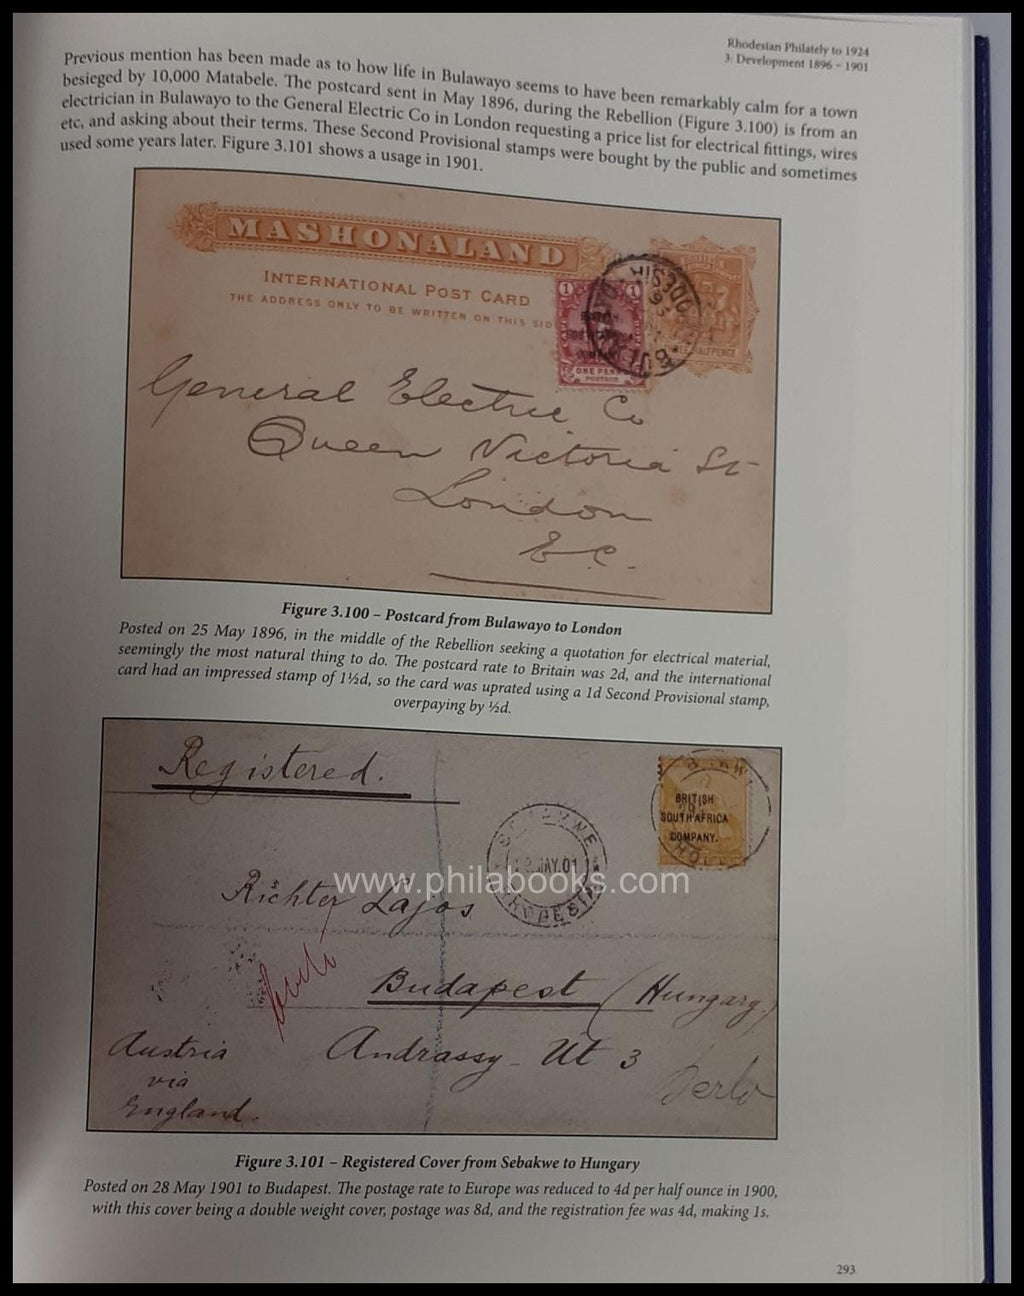 Rhodesian Philately to 1924
3: Development 1896 – 1901
Previous mention has been made as to how life in Bulawayo seems to have been remarkably calm for a town
besieged by 10,000 Matabele. The postcard sent in May 1896, during the Rebellion (Figure 3.100) is from an
electrician in Bulawayo to the General Electric Co in London requesting a price list for electrical fittings, wires
etc, and asking about their terms. These Second Provisional stamps were bought by the public and sometimes
used some years later. Figure 3.101 shows a usage in 1901.
MASHONALAND
INTERNATIONAL POST CARD
THE ADDRESS ONLY TO BE WRITTEN ON THIS SID
1 1
SOUTH AFRICA
COMPANY
ONE PENNY
POSTAGE
HALFPENCE
General Electric Co
Queen Victoria St
London
E.C.
Figure 3.100 – Postcard from Bulawayo to London
Posted on 25 May 1896, in the middle of the Rebellion seeking a quotation for electrical material,
seemingly the most natural thing to do. The postcard rate to Britain was 2d, and the international
card had an impressed stamp of 1½d, so the card was uprated using a 1d Second Provisional stamp,
overpaying by ½d.
Registered.
BRITISH
SOUTH AFRICA
COMPANY.
MAY.01
RHODESIA
www.philabooks.com
Richter Lajos
Budapest (Hungary.)
Austria
via
England.
Andrassy - Ut 3
Figure 3.101 – Registered Cover from Sebakwe to Hungary
Posted on 28 May 1901 to Budapest. The postage rate to Europe was reduced to 4d per half ounce in 1900,
with this cover being a double weight cover, postage was 8d, and the registration fee was 4d, making 1s.
293